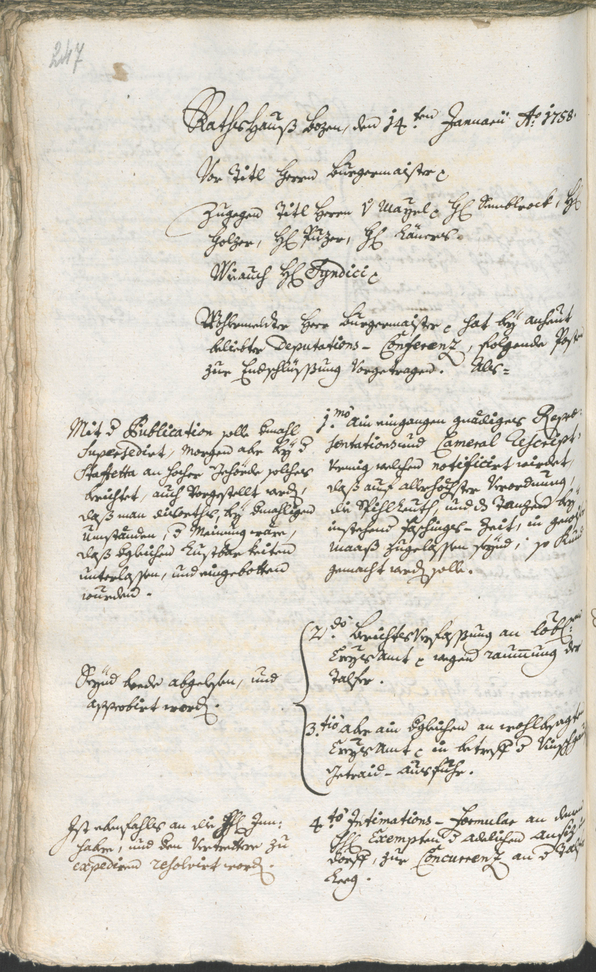 247
Rathshauß Bozen, den 14.ten Januarii Ao 1758.
Vor Titl Herrn Burgermaister
Zugegen Titl Herrn v Mayrl, HE. Sumblrock, HE
Holzer, HE Ritzer, HE.
Wie auch HE Syndici
Wohlermelter Herr Burgermaister hat bey anheut
beliebter Deputations-Conferenz, folgende Posten
zur Entschlüssung vorgetragen. Als=
Mit d Publication solle dermahl
supersedirt, morgen aber bey d
Staffetta an hocher Behörde solches
berichtet, auch vorgestellt werden
daß man dißorths bey dermahligen
Umständen, d Meinung wäre,
daß dergleichen Lustbarkeiten
unterlassen, und eingebotten
wurden.
1.mo Ain eingangen gnädiges Repræ-
sentations und Cameral Rescript,
vermög welchen notificirt wirdet,
daß auß allerhöchster Verordnung,
die Spilleuth, und das Tanzen bey
instehend Faschings-Zeit, in gewisser
Maaß zugelassen seynd, so kund
gemacht werden solle.
Seynd beede abgelesen, und
approbirt worden.
2.do Berichtsverfassung an löbl.
Creys Amt wegen Raumung der
Talfer.
3.tio aber ain dergleichen an wohlbesagtes
Creys Amt in betreff d Vinschgau
Getraid-Ausfuhr.
Ist ebenfahls an die HE Inn-
haber, und den Vertretter zu
expediren resolvirt worden.
4.to Intimations-Formular an denen
HE Exempten d adelichen Ansitz
Dorff, zur Concurrenz an d Talfer
Leeg.